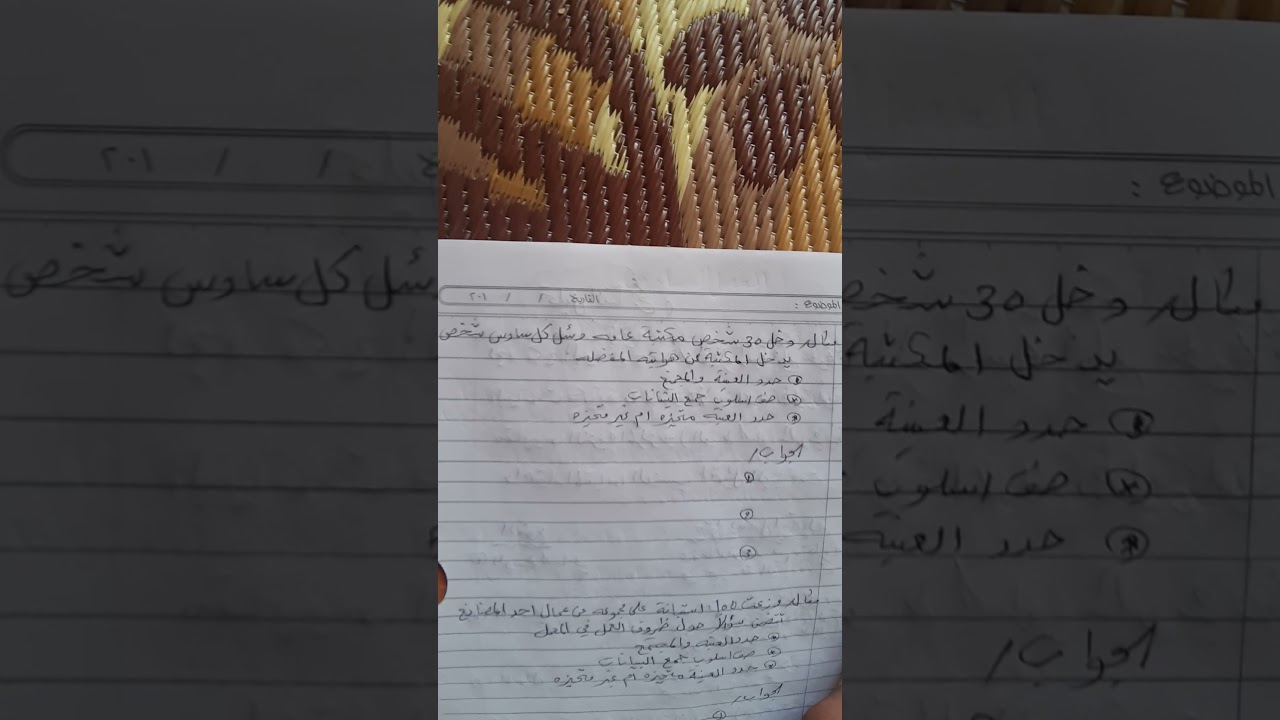 الموضوع : التاريخ / / ٢٠١
مثال/ دخل 30 شخص مكتبة عامه وسئل كل سادس شخص
يدخل المكتبة عن هوايته المفضله
① حدد العينة والمجتمع
② صف اسلوب جمع البيانات
③ حدد العينة متحيزه ام غير متحيزه
الجواب/
①
②
③
مثال/ وزعت 100 استبانة على مجموعه من عمال احد المصانع
تتضمن سؤالاً حول ظروف العمل في المعمل
① حدد العينة والمجتمع
② صف اسلوب جمع البيانات
③ حدد العينة متحيزه ام غير متحيزه
الجواب/
①